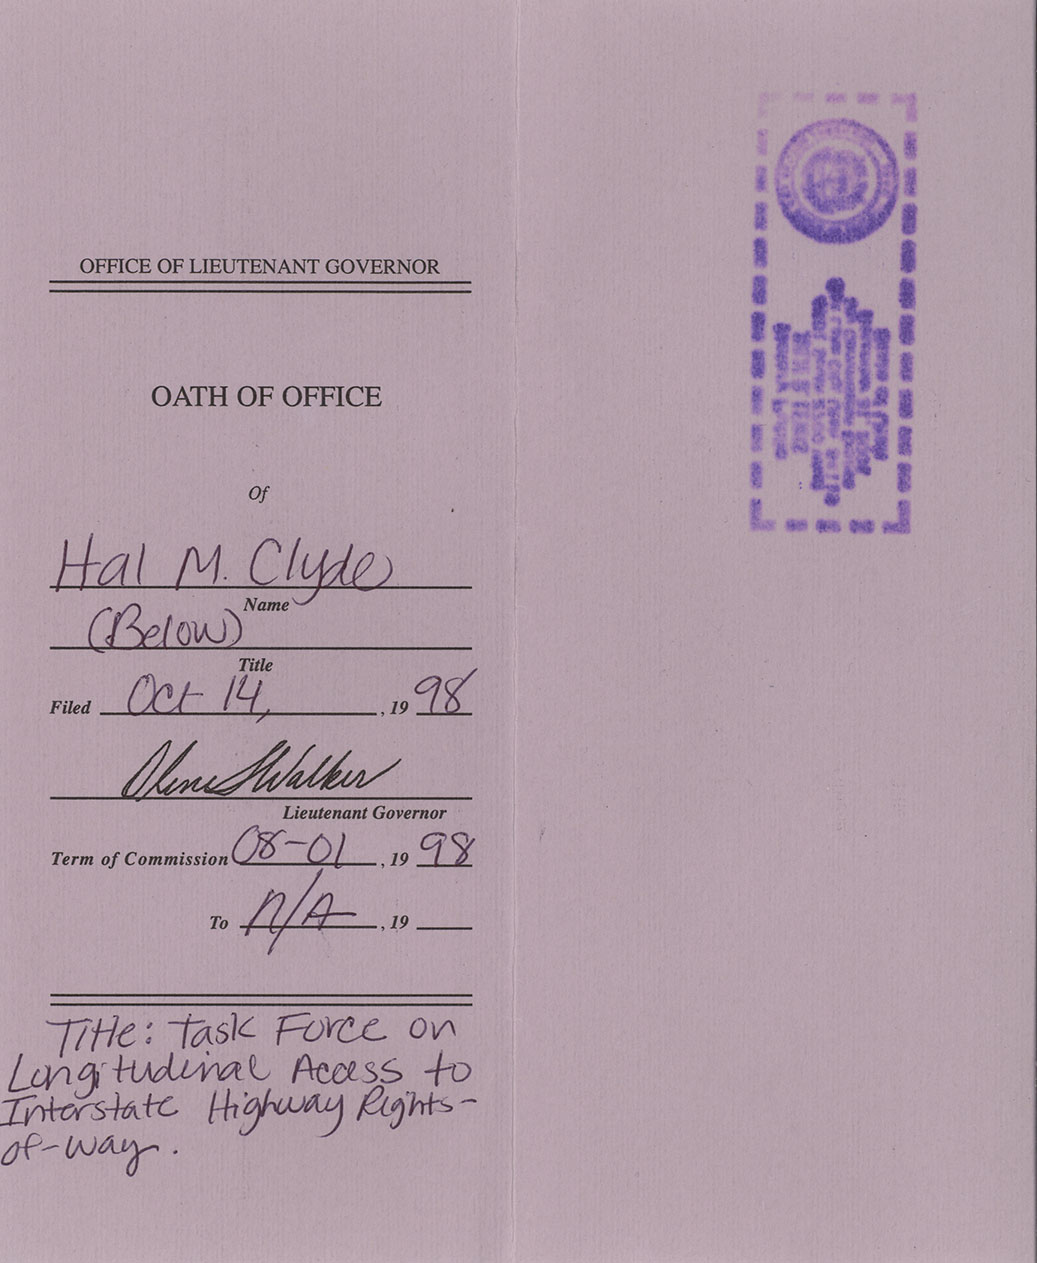 OFFICE OF LIEUTENANT GOVERNOR
OATH OF OFFICE
Of
Hal M. Clyde
Name
(Below)
Title
Filed Oct 14, , 19 98
Olene S Walker
Lieutenant Governor
Term of Commission 08-01 , 19 98
To N/A , 19
Title: Task Force on
Longitudinal Access to
Interstate Highway Rights-
of-way.